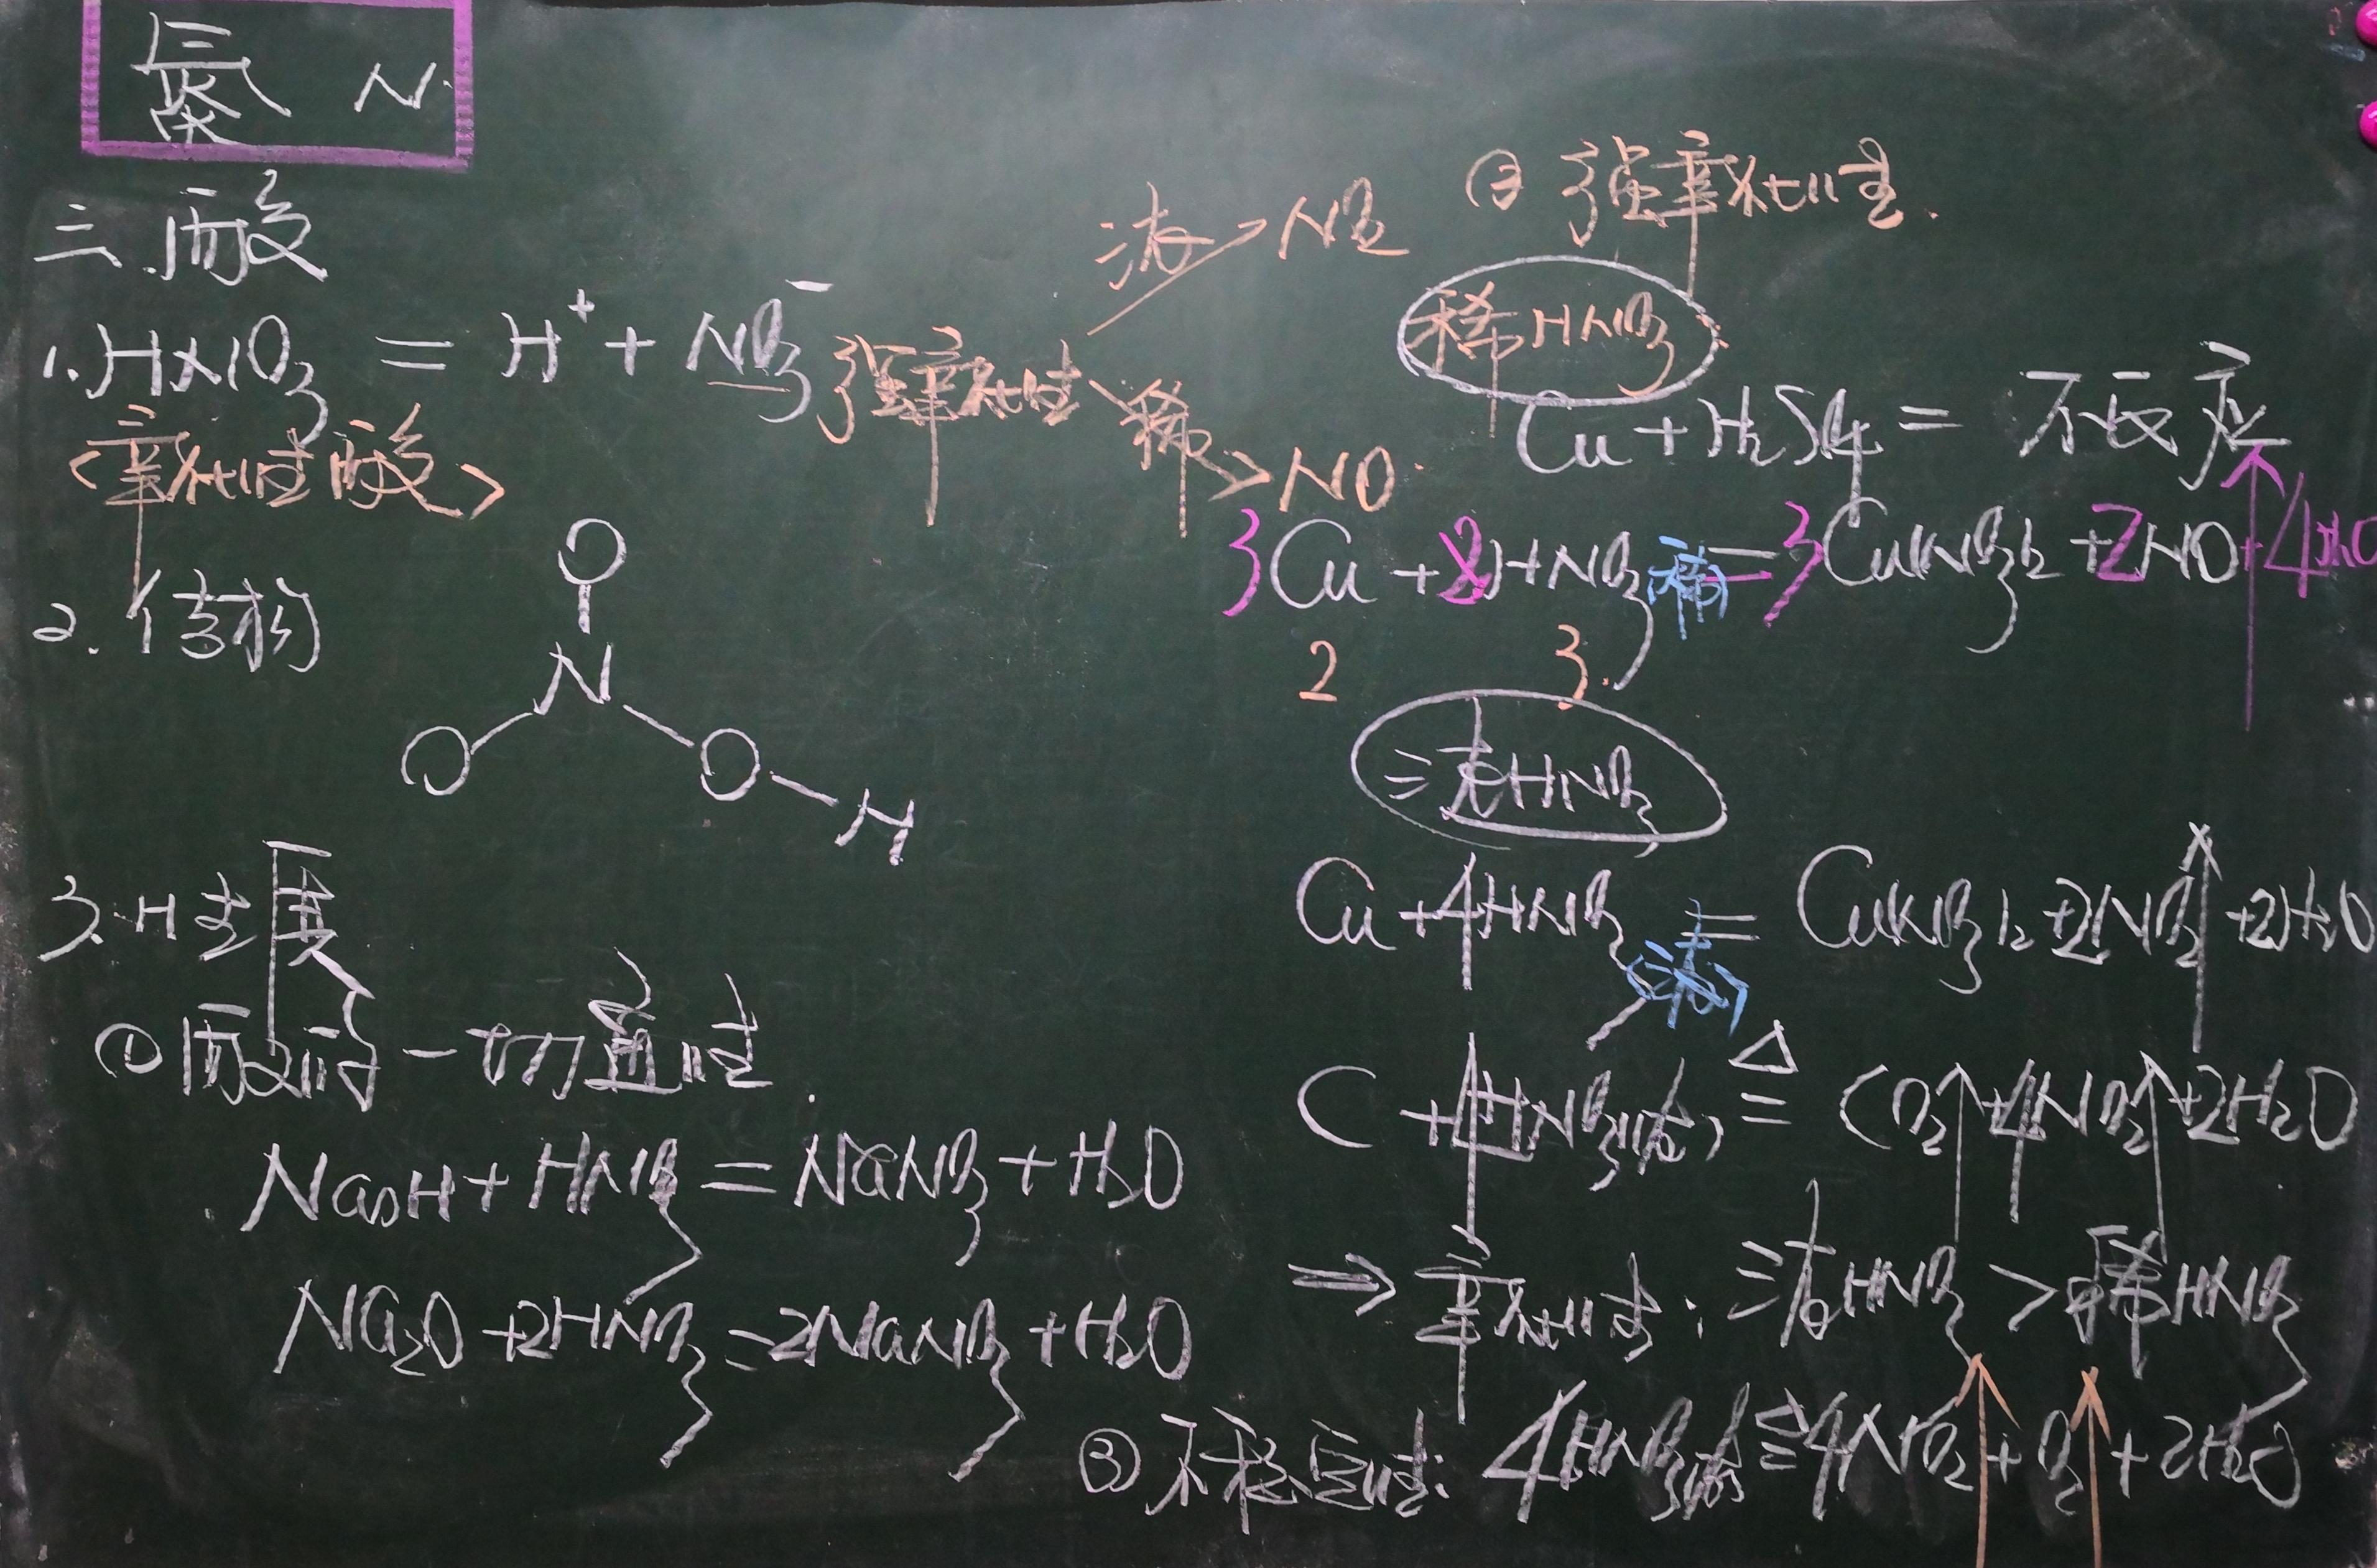 氮 N
三.酸
1.HNO₃ = H⁺ + NO₃⁻ 强氧化性
浓→NO₂
稀→NO
<氧化性酸>
2.结构
O
N
O O
H
3.H 性质
①酸的一切通性.
NaOH + HNO₃ = NaNO₃ + H₂O
Na₂O + 2HNO₃ = 2NaNO₃ + H₂O
② 强氧化性.
稀HNO₃
Cu + H₂SO₄ = 不反应
3Cu + 8HNO₃(稀) = 3Cu(NO₃)₂ + 2NO↑ + 4H₂O
2 3
浓HNO₃
Cu + 4HNO₃(浓) = Cu(NO₃)₂ + 2NO₂↑ + 2H₂O
C + 4HNO₃(浓) =△= CO₂↑ + 4NO₂↑ + 2H₂O
⇒ 氧化性: 浓HNO₃ > 稀HNO₃
③不稳定性: 4HNO₃浓 =△= 4NO₂↑ + O₂↑ + 2H₂O